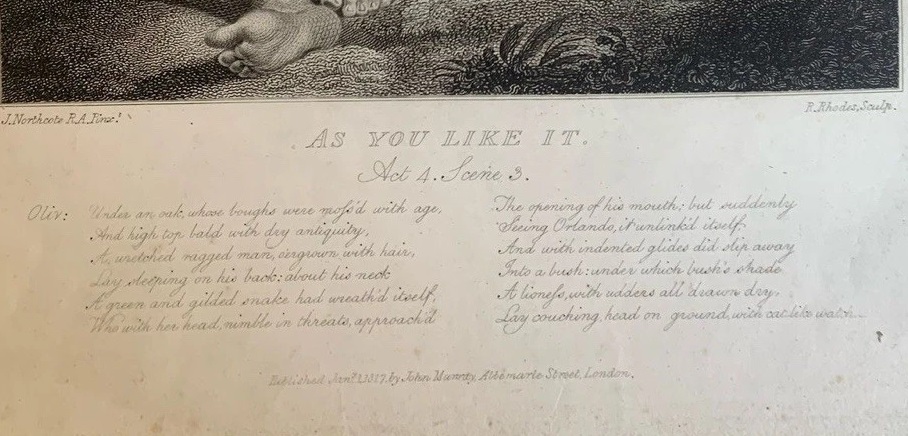 J. Northcote R.A. Pinx.t
R. Rhodes, Sculp.
AS YOU LIKE IT.
Act 4. Scene 3.
Oliv: Under an oak, whose boughs were moſs'd with age,
And high top bald with dry antiquity,
A, wretched ragged man, o'ergrown with hair,
Lay sleeping on his back: about his neck
A green and gilded snake had wreath'd itself,
Who with her head, nimble in threats, approach'd
The opening of his mouth; but suddenly
Seeing Orlando, it unlink'd itself,
And with indented glides did slip away
Into a bush: under which bush's shade
A lioneſs, with udders all drawn dry,
Lay couching, head on ground, with cat like watch
Published Jany. 1, 1817, by John Murray, Albemarle Street, London.